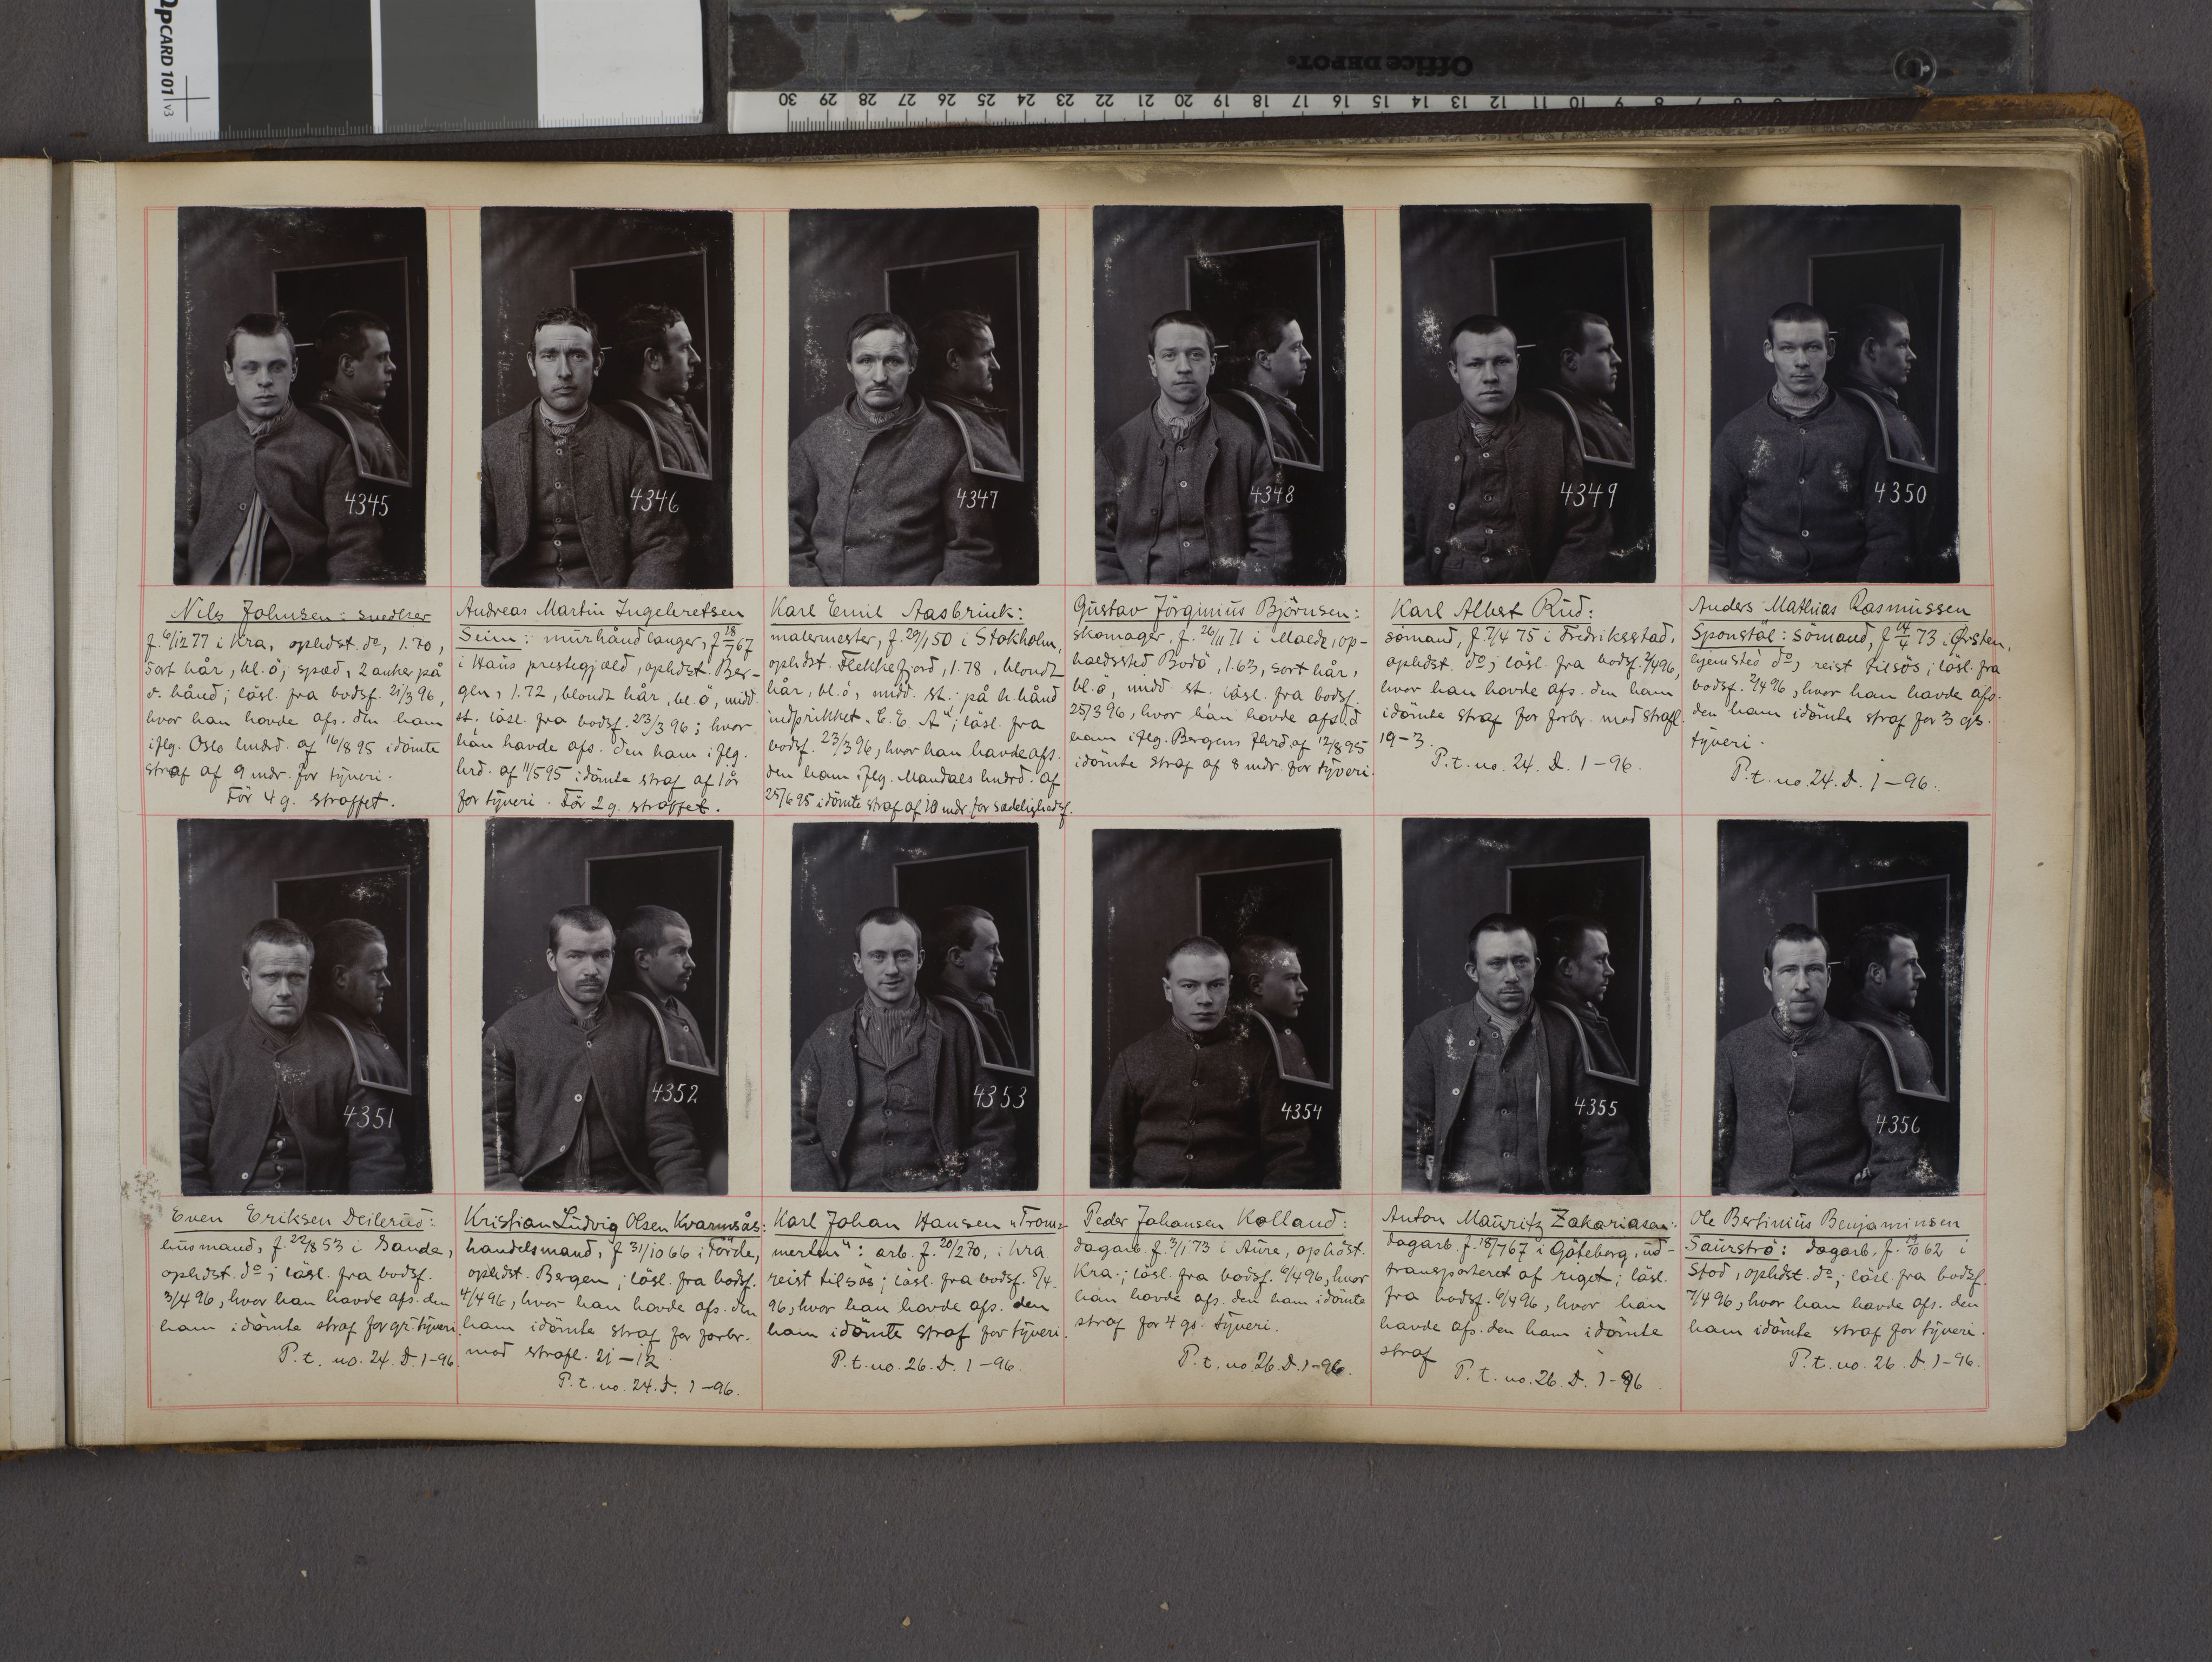 QPCARD 101 v3
Office DEPOT.
30 29 28 27 26 25 24 23 22 21 20 19 18 17 16 15 14 13 12 11 10 9 8 7
4345
4346
4347
4348
4349
4350
Nils Johnsen: snedker
f. 6/12 77 i Kra, ophdst. do, 1.70,
sort hår, bl. ö; spæd, 2 anker på
v. hånd; lösl. fra bodsf. 21/3 96,
hvor han havde afs. den ham
iflg. Oslo hmdrd. af 16/8 95 idömte
straf af 9 mdr. for tyveri.
För 4 g. straffet.
Andreas Martin Ingebretsen
Seim: murhåndlanger, f 18/7 67
i Haus prestegjæld, ophdst. Ber-
gen, 1.72, blondt hår, bl. ö, midd.
st. lösl. fra bodsf. 23/3 96; hvor
han havde afs. den ham iflg.
hrd. af 11/5 95 idömte straf af 1 år
for tyveri. För 2 g. straffet.
Karl Emil Aasbrink:
malermester, f. 29/1 50 i Stokholm,
ophdst. Flekkefjord, 1.78, blondt
hår, bl. ö, midd. st.; på h. hånd
indprikket „E. E. A"; lösl. fra
bodsf. 23/3 96, hvor han havde afs.
den ham iflg. Mandals hmdrd. af
25/6 95 idömte straf af 10 mdr for sædelighedsf.
Gustav Jörginius Björnsen:
skomager, f. 26/11 71 i Maade, op-
holdssted Bodö, 1.63, sort hår,
bl. ö, midd. st. lösl. fra bodsf.
25/3 96, hvor han havde afs. d
ham iflg. Bergens hrd. af 12/8 95
idömte straf af 8 mdr. for tyveri.
Karl Albert Rud:
sömand, f. 7/4 75 i Fredriksstad,
ophdst. do; lösl. fra bodsf. 2/4 96,
hvor han havde afs. den ham
idömte straf for forbr. mod strafl.
19-3.
P.t. no. 24. D. 1-96.
Anders Mathias Rasmussen
Sponstöl: sömand, f 14/4 73 i Ørsten,
hjemsted do, reist tilsös; lösl. fra
bodsf. 2/4 96, hvor han havde afs.
den ham idömte straf for 3 gs.
tyveri.
P.t. no. 24. D. 1-96.
4351
4352
4353
4354
4355
4356
Even Eriksen Deilerud:
husmand, f. 22/8 53 i Sande,
ophdst. do; lösl. fra bodsf.
3/4 96, hvor han havde afs. den
ham idömte straf for gr. tyveri.
P.t. no. 24. D. 1-96.
Kristian Ludvig Olsen Kvammsås:
handelsmand, f 31/10 66 i Förde,
ophdst. Bergen; lösl. fra bodsf.
4/4 96, hvor han havde afs. den
ham idömte straf for forbr.
mod strafl. 21-12.
P.t. no. 24. D. 1-96.
Karl Johan Hansen „Trom-
merlun": arb. f. 20/2 70, i Kra
reist tilsös; lösl. fra bodsf. 5/4.
96, hvor han havde afs. den
ham idömte straf for tyveri.
P.t. no. 26. D. 1-96.
Peder Johansen Kolland:
dagarb. f. 3/1 73 i Aure, ophdst.
Kra.; lösl. fra bodsf. 6/4 96, hvor
han havde afs. den ham idömte
straf for 4 gs. tyveri.
P.t. no 26. D. 1-96.
Anton Mauritz Zakariasen:
dagarb. f. 18/7 67 i Göteborg, ud-
transporteret af riget; lösl.
fra bodsf. 6/4 96, hvor han
havde afs. den ham idömte
straf
P.t. no. 26. D. 1-96
Ole Bertinius Benjaminsen
Saurströ: dagarb, f. 19/10 62 i
Stod, ophdst. do; lösl. fra bodsf.
7/4 96, hvor han havde afs. den
ham idömte straf for tyveri.
P.t. no. 26. D. 1-96.